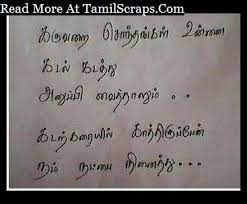 Read More At TamilScraps.Com
கருவறை சொந்தங்கள் உன்னை
கடல் கடத்து
அனுப்பி வைத்தாலும் . .
கடற்கரையில் காத்திருப்பேன்
நம் நட்பை நினைத்து . . .